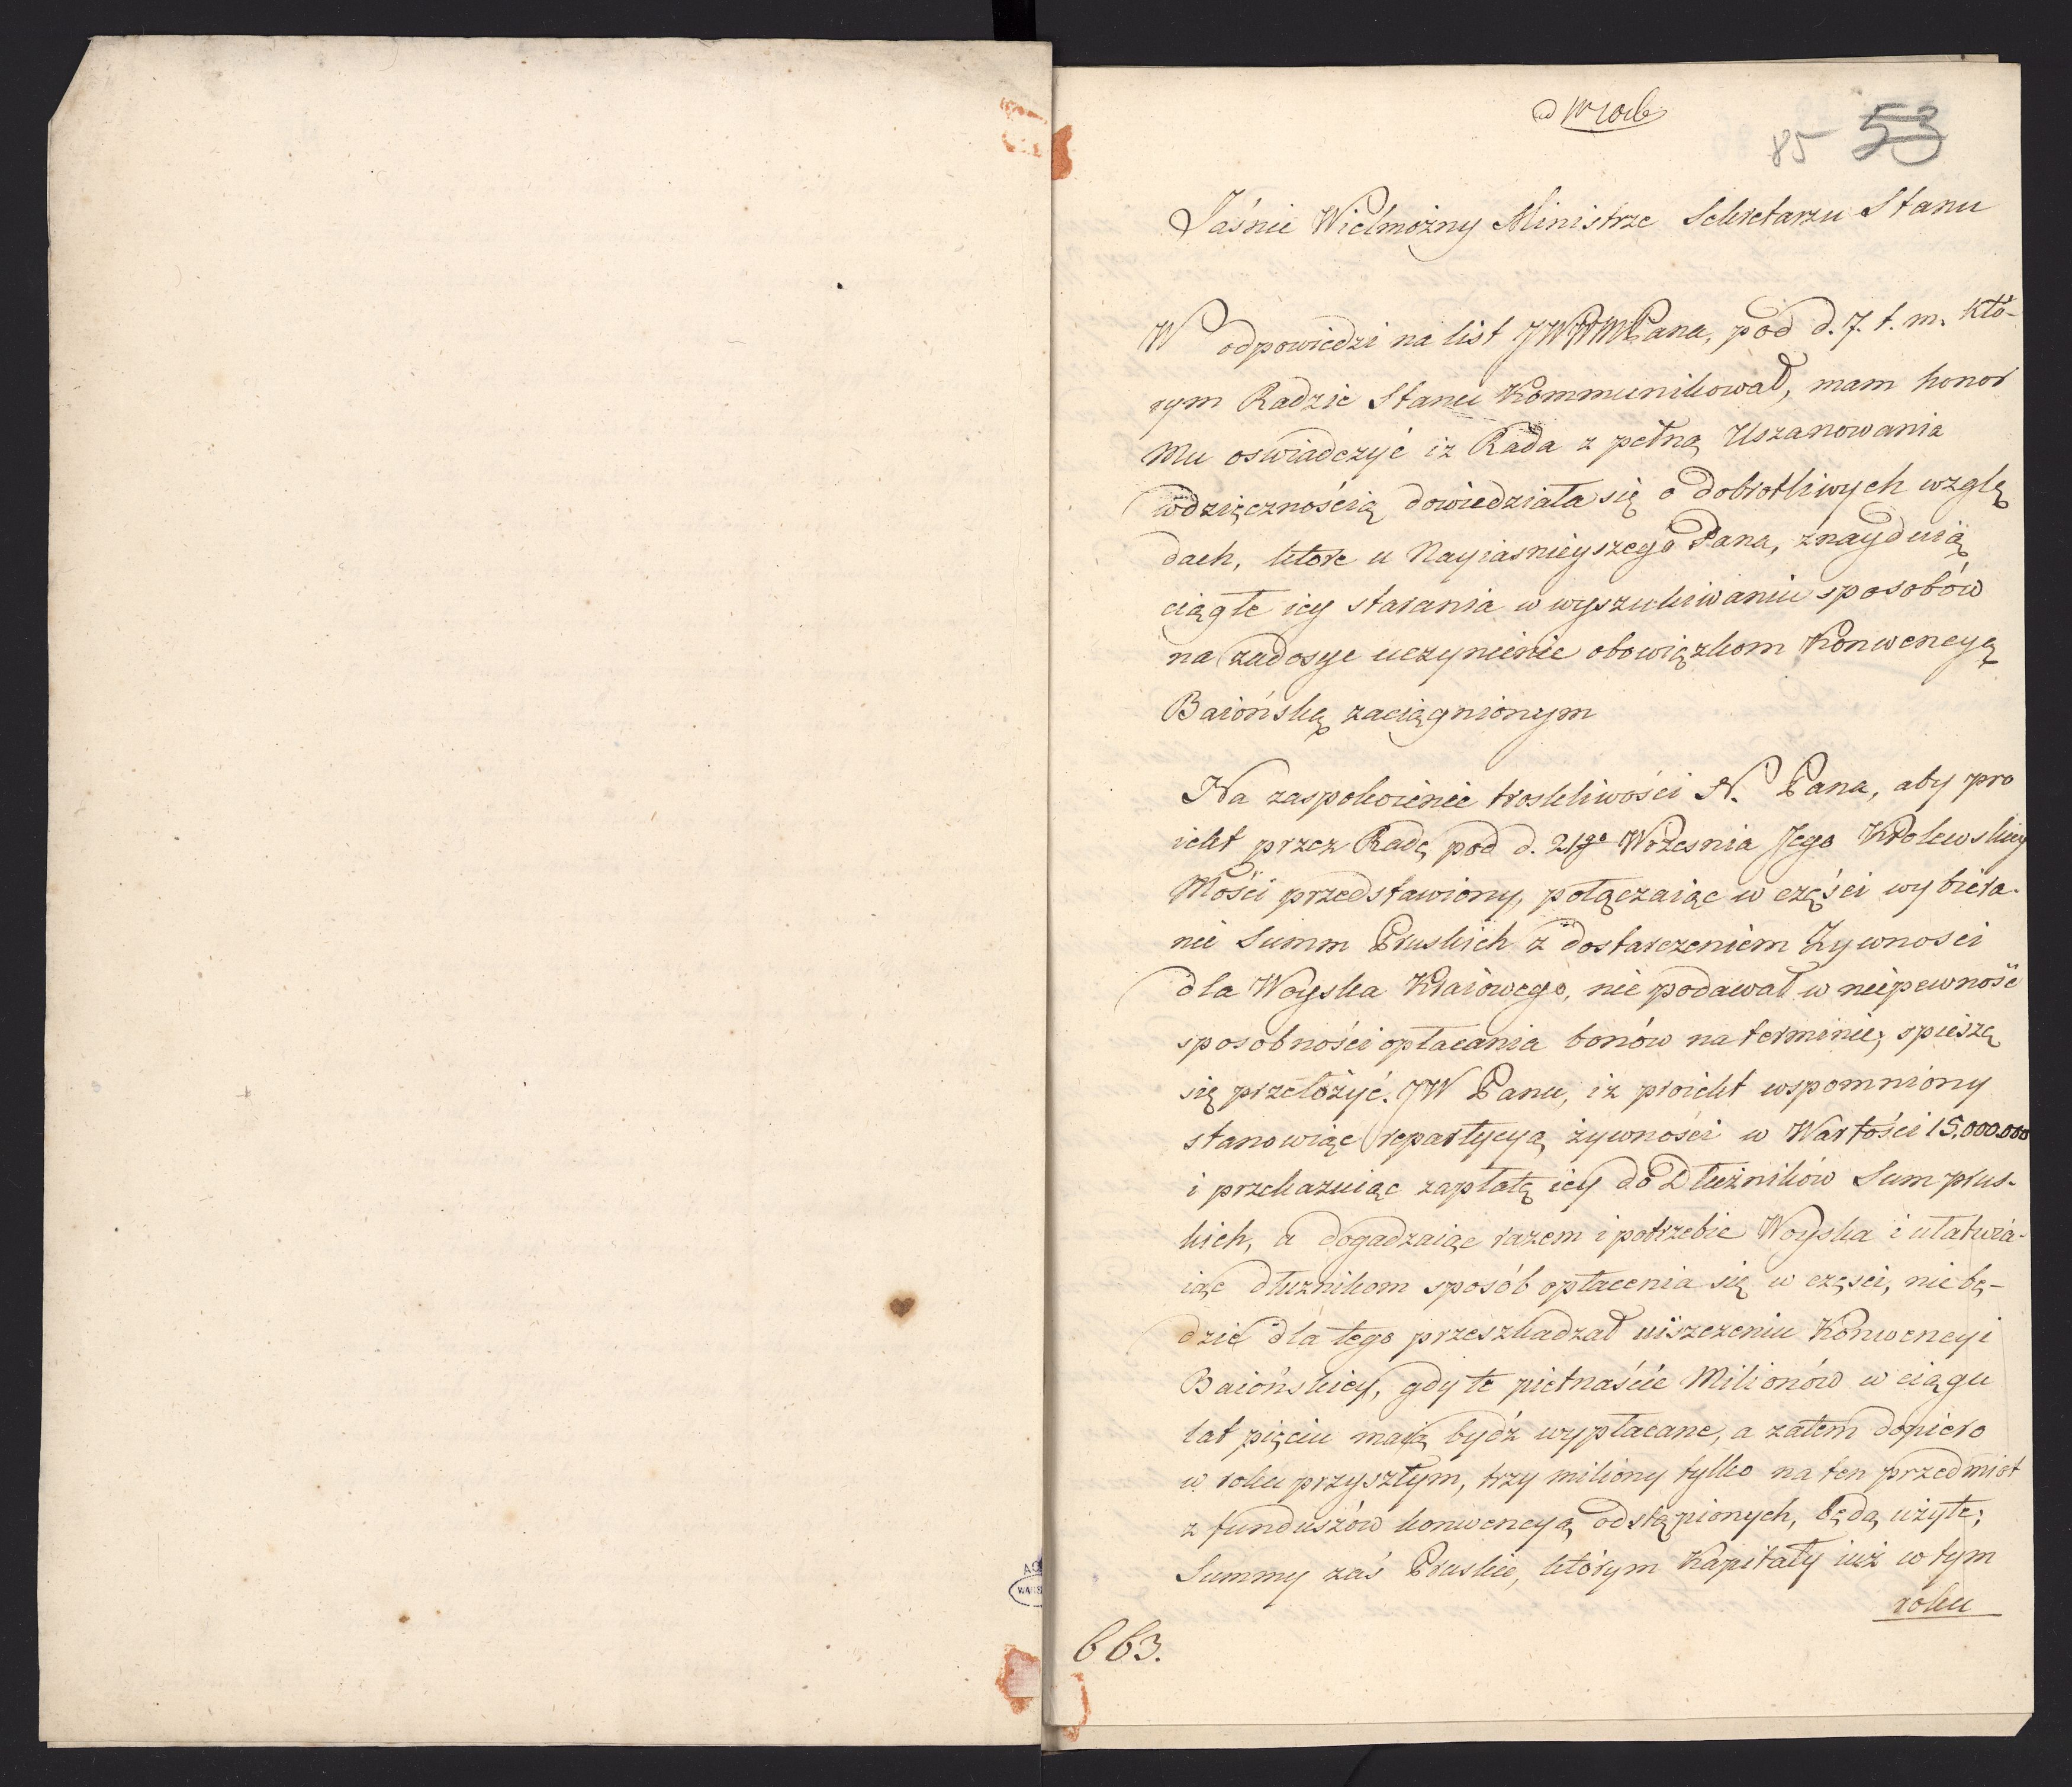 85 53
Jaśnie Wielmożny Ministrze Sekretarzu Stanu
W odpowiedzi na list JWWMPana, pod d. 7. t. m. któ-
rym Radzie Stanu Kommunikował, mam honor
Mu oswiadczyć iz Rada z pełną Uszanowania
wdzięcznością dowiedziała się o dobrotliwych wzglę
dach, ktore u Nayiasnieyszego Pana, znayduią
ciągłe iey starania w wyszukiwaniu sposobów
na zadosyc uczynienie obowiązkom Konwencyą
Baiońską zaciągnionym
Na zaspokoienie troskliwości N. Pana, aby pro
iekt przez Radę pod d. 21go Wrzesnia Jego Krolewskiey
Mości przedstawiony, połączaiąc w części wybiera-
nie Summ Pruskich z dostarczeniem Zywnosci
dla Woyska Kraiowego, nie podawał w niepewność
sposobności opłacania bonów na terminie; spieszę
się przełożyć JW Panu, iz proiekt wspomniony
stanowiąc repartycyą żywności w Wartości 15,000.000
i przekazuiąc zapłatę iey do Dłużników Sum prus-
kich, a dogadzaiąc razem i potrzebie Woyska i ułatwia-
iąc dłuznikom sposób opłacenia się w części, nie bę-
dzie dla tego przeszkadzał uiszczeniu Konwencyi
Baiońskiey, gdy te pietnaście Milionów w ciągu
lat pięciu maią bydź wypłacane, a zatem dopiero
w roku przyszłym, trzy miliony tylko na ten przedmiot
z funduszów konwencyą odstąpionych, będą użyte;
Summy zaś Pruskie, którym Kapitały iuż w tym
roku
663.